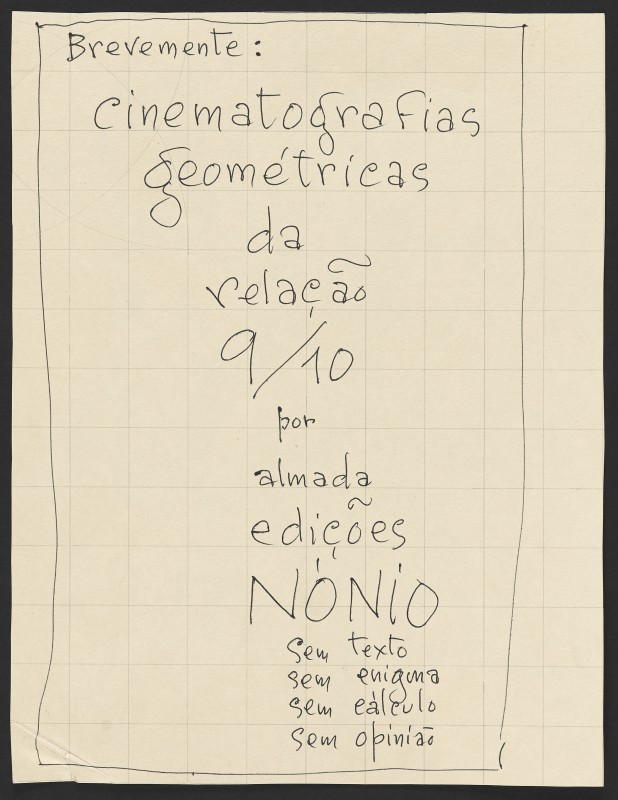 Brevemente:
cinematografias
geométricas
da
relação
9/10
por
almada
edições
NÓNIO
Sem texto
sem enigma
sem cálculo
sem opinião